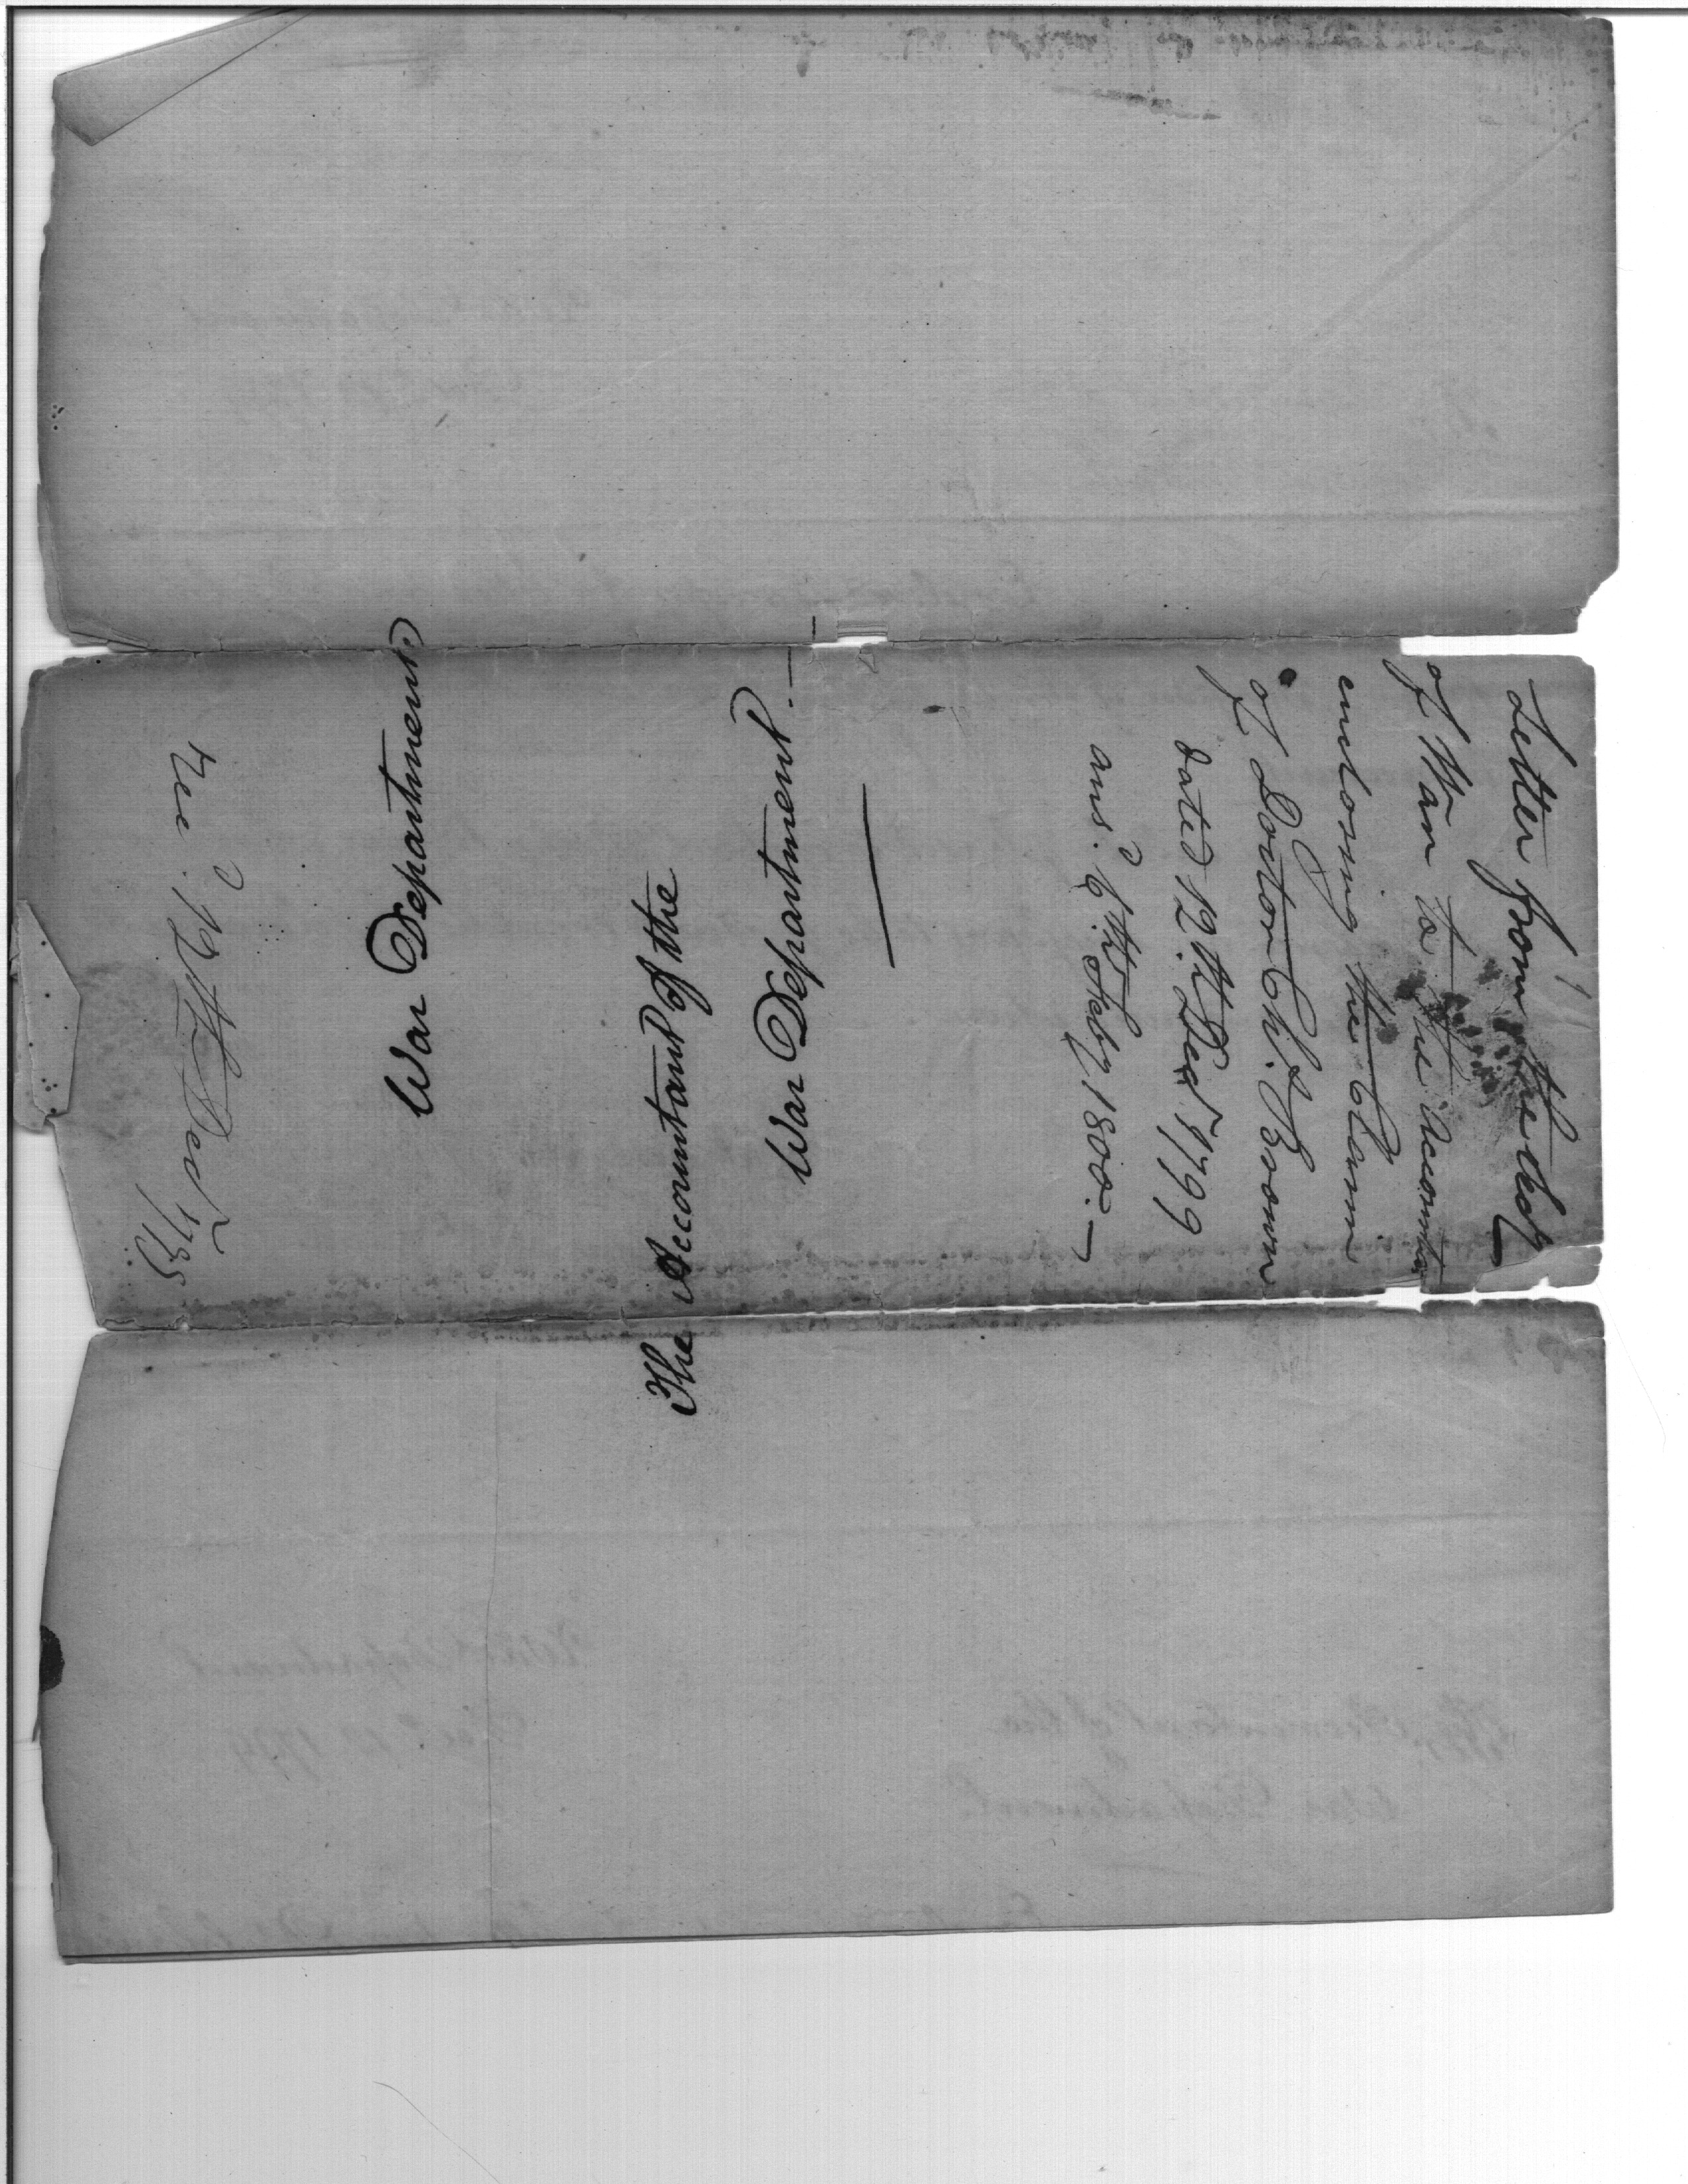 Letter from the Secy
of War to the Accountant
enclosing the Claim
of Doctor Ch. Brown
dated 12.th Decr 1799
ansd. 6th. Feby 1800.—
War Department
The Accountant of the
War Department.—
recd. 12th Decr
1799